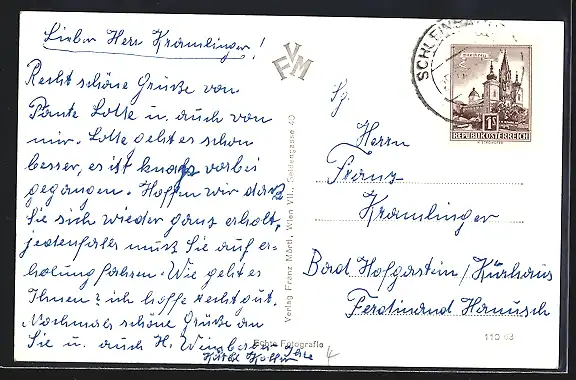 Lieber Herr Kramlinger!
Recht schöne Grüße von
Tante Lotte u. auch von
mir. Lotte geht es schon
besser, es ist knapp vorbei
gegangen. Hoffen wir das
Sie sich wieder ganz erholt,
jedenfalls muß Sie auf er-
holung fahren. Wie geht es
Ihnen? ich hoffe recht gut.
Nochmals schöne Grüße an
Sie u. auch H.
VFM
Verlag Franz Mörtl, Wien VII., Seidengasse 40
Echte Fotografie
SCHLEIN
1S
REPUBLIK ÖSTERREICH
Hg.
Herrn
Franz
Kramlinger
Bad Hofgastein/Kurhaus
Ferdinand Hanusch
110 63
4